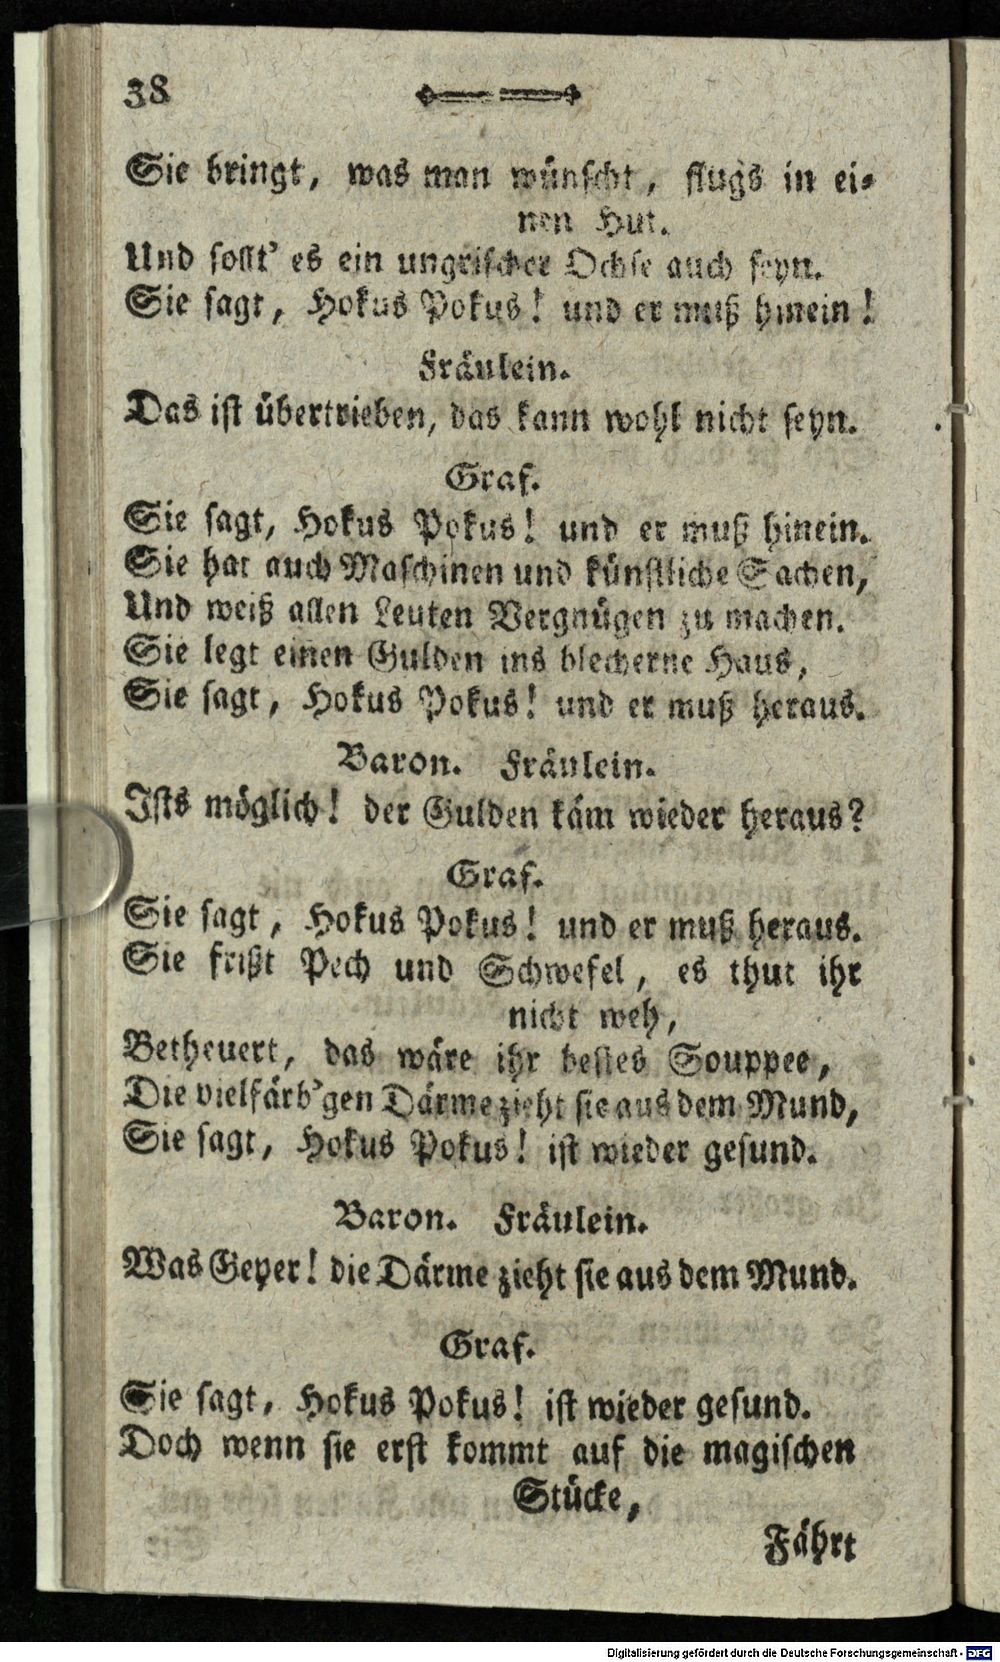 38
Sie bringt, was man wünscht, flugs in ei-
nen Hut.
Und sollt' es ein ungrischer Ochse auch seyn.
Sie sagt, Hokus Pokus! und er muß hinein!
Fräulein.
Das ist übertrieben, das kann wohl nicht seyn.
Graf.
Sie sagt, Hokus Pokus! und er muß hinein.
Sie hat auch Maschinen und künstliche Sachen,
Und weiß allen Leuten Vergnügen zu machen.
Sie legt einen Gulden ins blecherne Haus,
Sie sagt, Hokus Pokus! und er muß heraus.
Baron. Fräulein.
Ists möglich! der Gulden käm wieder heraus?
Graf.
Sie sagt, Hokus Pokus! und er muß heraus.
Sie frißt Pech und Schwefel, es thut ihr
nicht weh,
Betheuert, das wäre ihr bestes Souppee,
Die vielfärb'gen Därme zieht sie aus dem Mund,
Sie sagt, Hokus Pokus! ist wieder gesund.
Baron. Fräulein.
Was Geyer! die Därme zieht sie aus dem Mund.
Graf.
Sie sagt, Hokus Pokus! ist wieder gesund.
Doch wenn sie erst kommt auf die magischen
Stücke,
Fährt
Digitalisierung gefördert durch die Deutsche Forschungsgemeinschaft - DFG